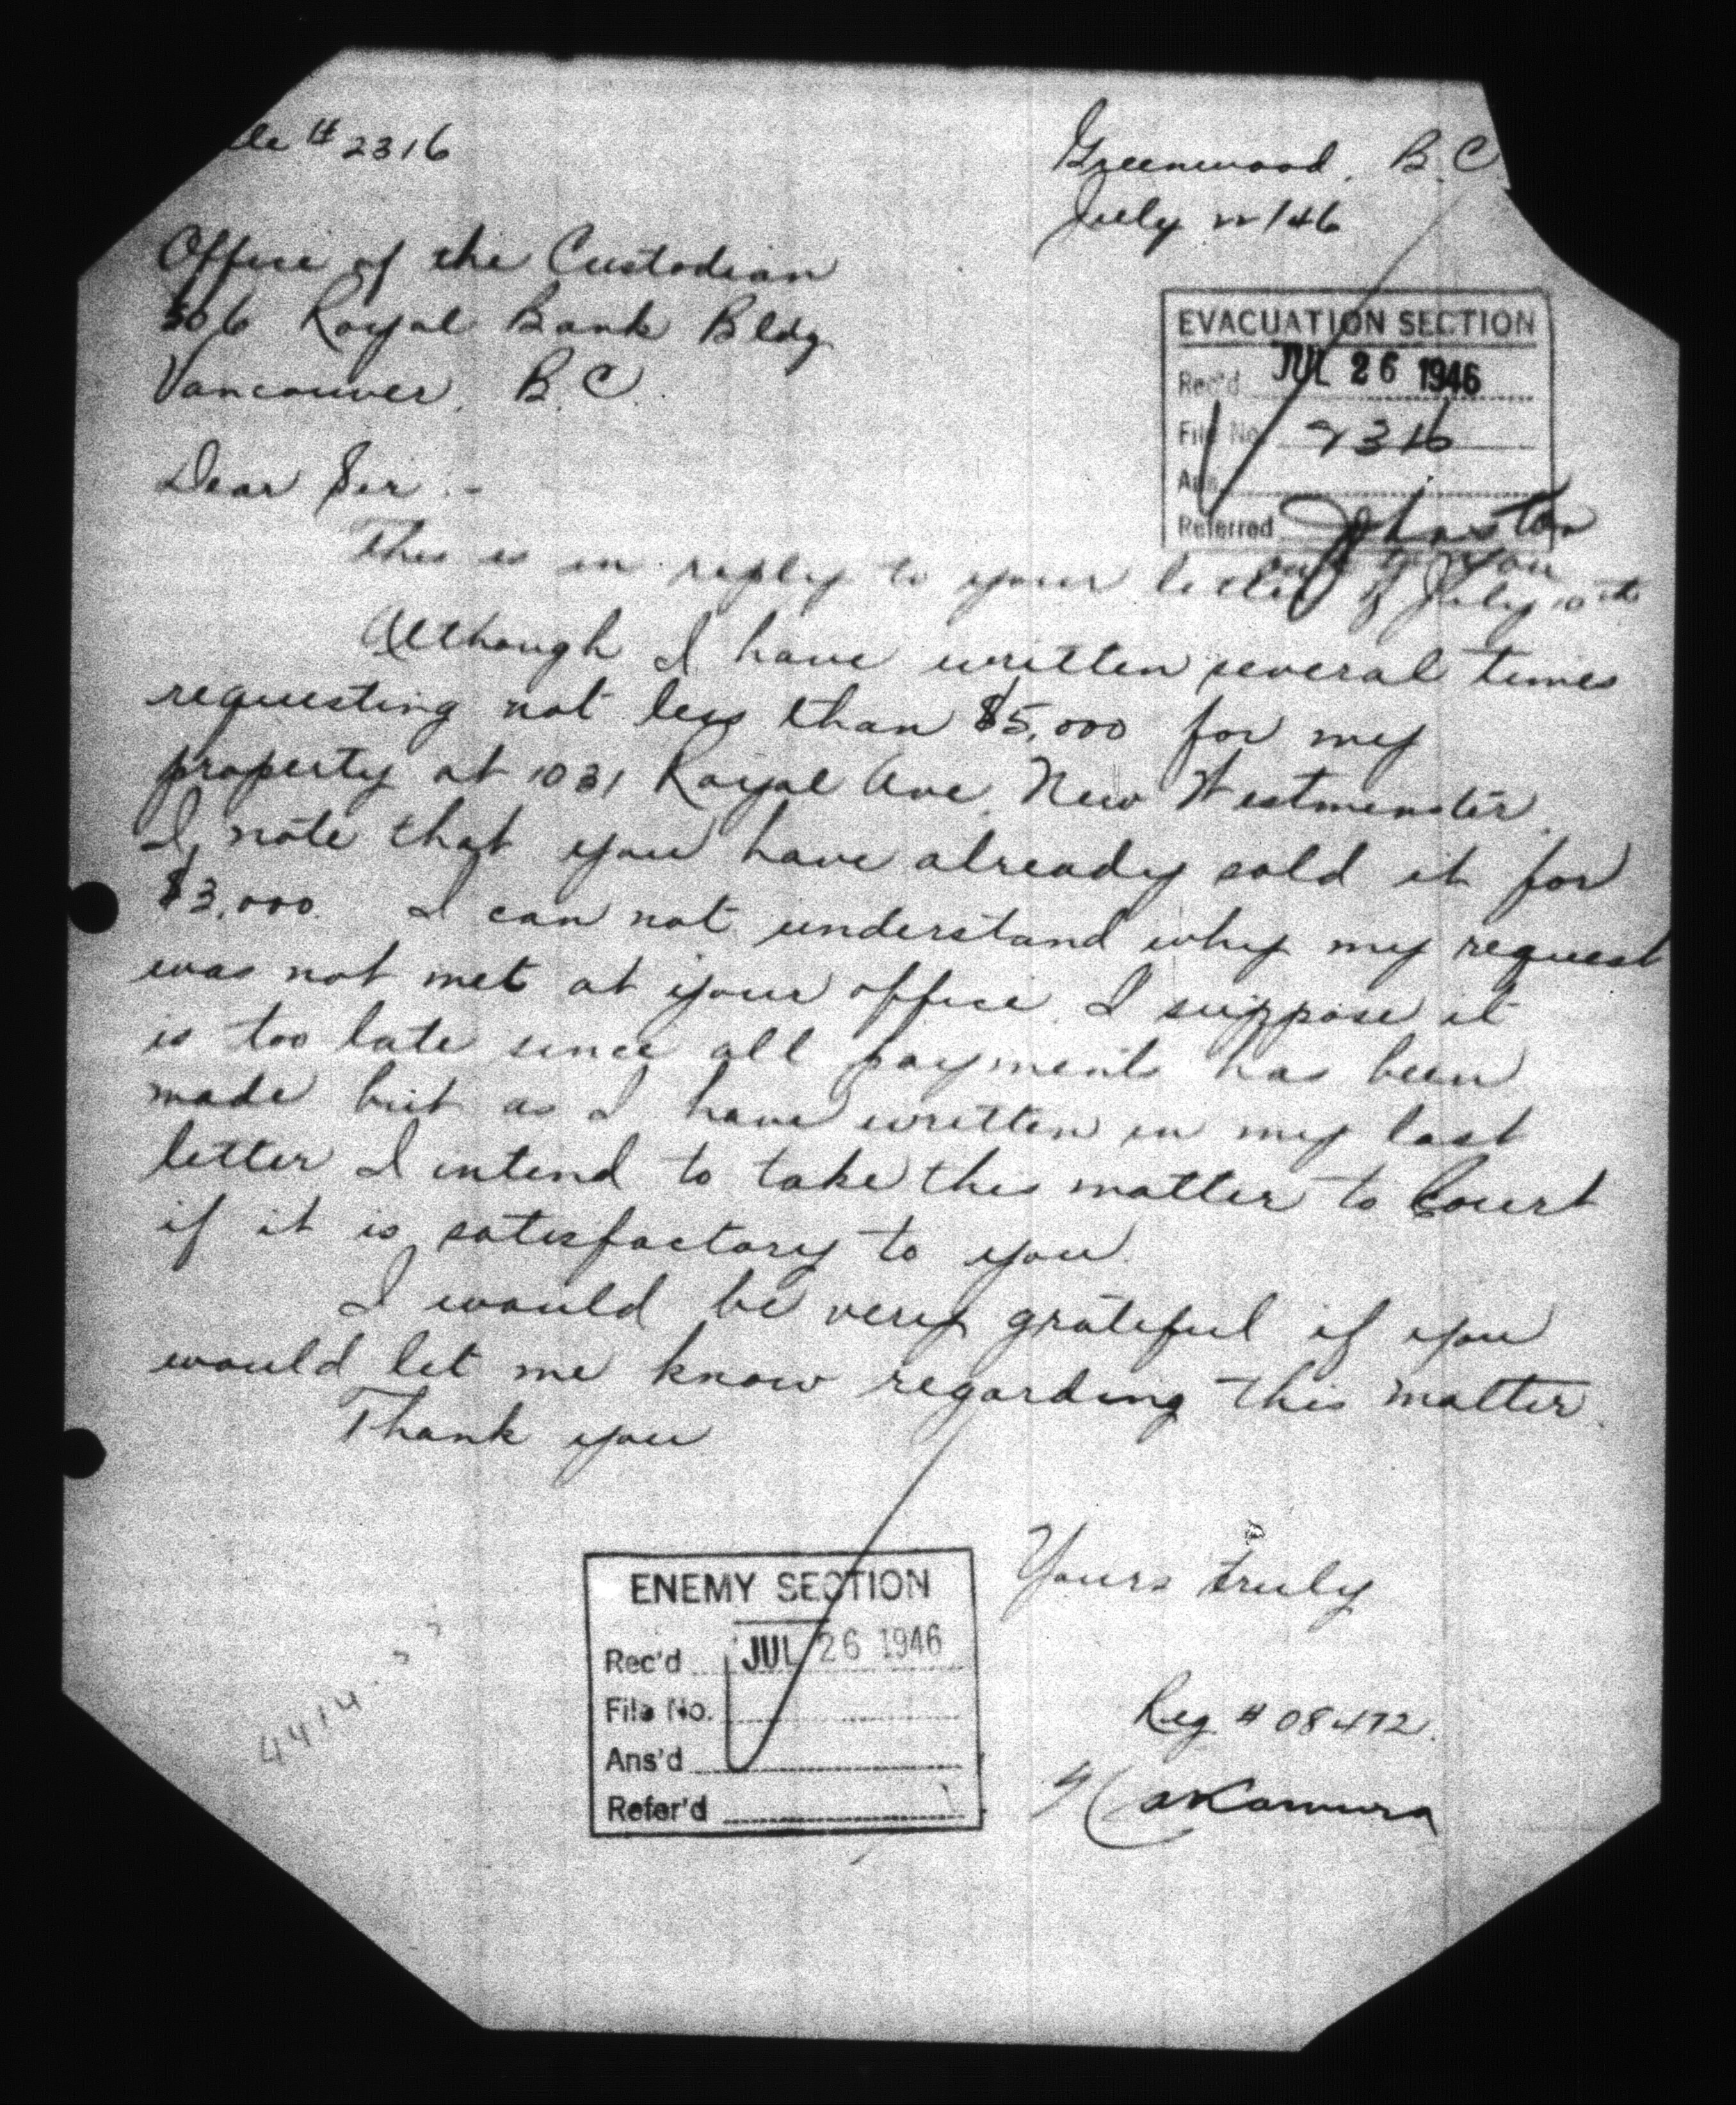 le # 2316
Greenwood, B.C
July 22/46
Office of the Custodian
506 Royal Bank Bldg
Vancouver, B.C.
EVACUATION SECTION
Rec'd JUL 26 1946
File No. 2316
Ans.
Referred Johnston
Dear Sir :-
This is in reply to your letter of July 10th
Although I have written several times
requesting not less than $5,000 for my
property at 1031 Royal Ave, New Westminster,
I note that you have already sold it for
$3,000. I can not understand why my request
was not met at your office. I suppose it
is too late since all payments has been
made but as I have written in my last
letter I intend to take this matter to Court
if it is satisfactory to you.
I would be very grateful if you
would let me know regarding this matter.
Thank you
Yours truly
ENEMY SECTION
Rec'd JUL 26 1946
File No.
Ans'd
Refer'd
Reg # 08472.
Nakamura
4414